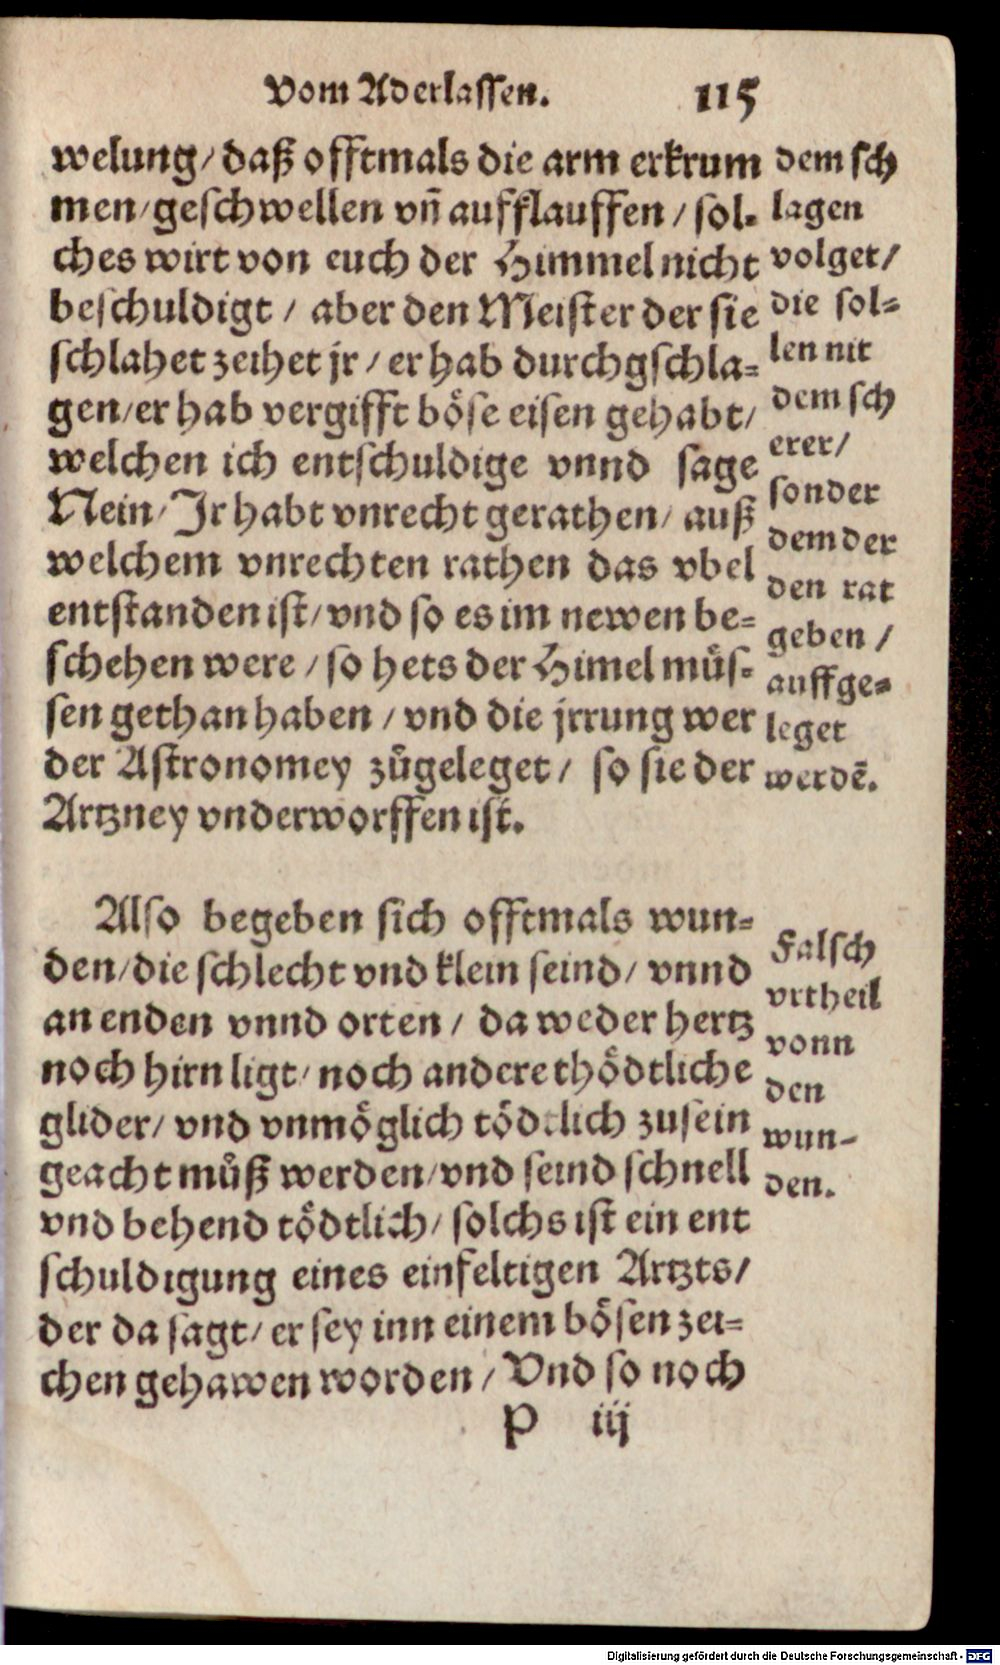 Vom Aderlassen. 115
welung/ daß offtmals die arm erkrum
men/ geschwellen vñ aufflauffen / sol-
ches wirt von euch der Himmel nicht
beschuldigt / aber den Meister der sie
schlahet zeihet jr / er hab durchgschla-
gen/ er hab vergifft böse eisen gehabt/
welchen ich entschuldige vnnd sage
Nein/ Jr habt vnrecht gerathen/ auß
welchem vnrechten rathen das vbel
entstanden ist/ vnd so es im newen be-
schehen were / so hets der Himel müs-
sen gethan haben / vnd die jrrung wer
der Astronomey zůgeleget / so sie der
Artzney vnderworffen ist.
dem sch
lagen
volget/
die sol-
len nit
dem sch
erer/
sonder
dem der
den rat
geben /
auffge-
leget
werdẽ.
Also begeben sich offtmals wun-
den/ die schlecht vnd klein seind/ vnnd
an enden vnnd orten / da weder hertz
noch hirn ligt/ noch andere thödtliche
glider/ vnd vnmöglich tödtlich zusein
geacht můß werden/ vnd seind schnell
vnd behend tödtlich/ solchs ist ein ent
schuldigung eines einfeltigen Artzts/
der da sagt/ er sey inn einem bösen zei-
chen gehawen worden / Vnd so noch
Falsch
vrtheil
vonn
den
wun-
den.
P iij
Digitalisierung gefördert durch die Deutsche Forschungsgemeinschaft - DFG